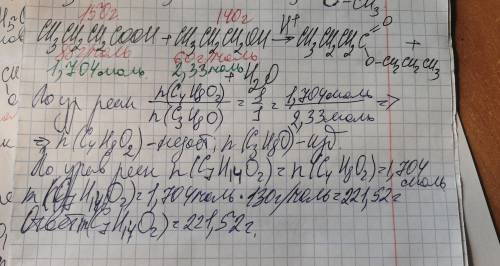 150г 140г
CH3CH2CH2COOH + CH3CH2CH2OH H+→ CH3CH2CH2C=O +
88г/моль 60г/моль O-CH2CH2CH3
1,704моль 2,33моль + H2O
По ур реак n(C4H8O2)/n(C3H8O) = 1/1 = 1,704моль/2,33моль =>
=> n(C4H8O2)-недост, n(C3H8O)-изб.
По урав реак n(C7H14O2) = n(C4H8O2) = 1,704
моль
m(C7H14O2) = 1,704моль · 130г/моль = 221,52г
Ответ: m(C7H14O2) = 221,52г.